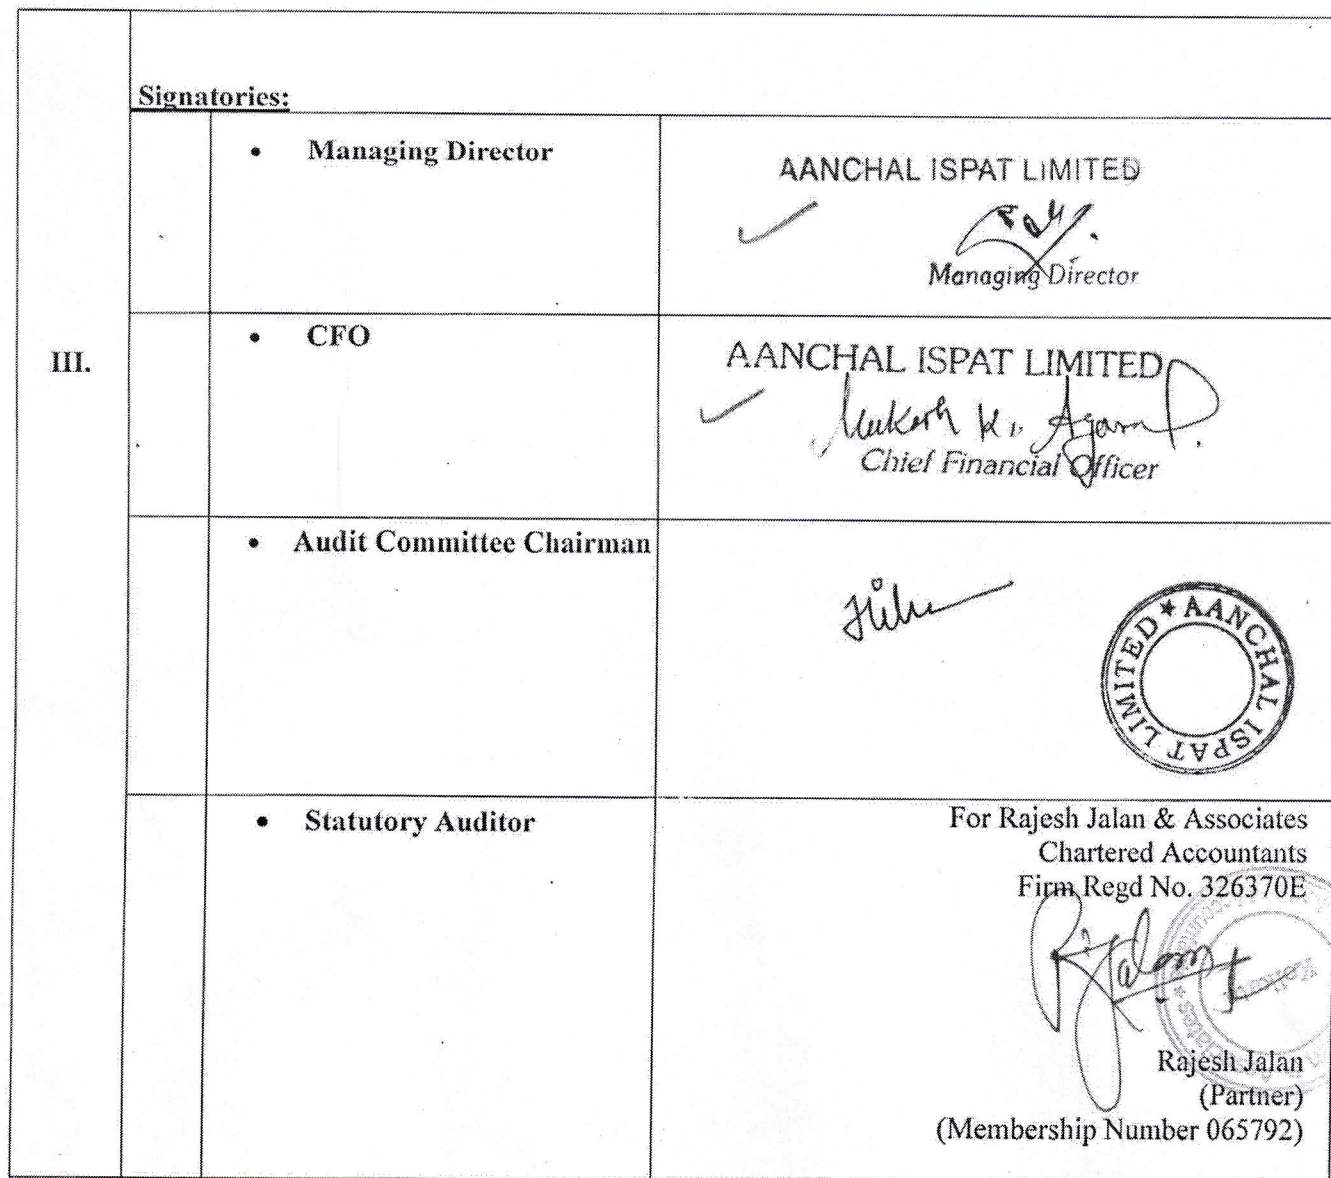 Signatories:
III.
• Managing Director
AANCHAL ISPAT LIMITED
Managing Director
• CFO
AANCHAL ISPAT LIMITED
Mukesh Kr. Agarwal
Chief Financial Officer
• Audit Committee Chairman
★ AANCHAL ISPAT LIMITED
• Statutory Auditor
For Rajesh Jalan & Associates
Chartered Accountants
Firm Regd No. 326370E
RJalan
Kolkata
Rajesh Jalan
(Partner)
(Membership Number 065792)